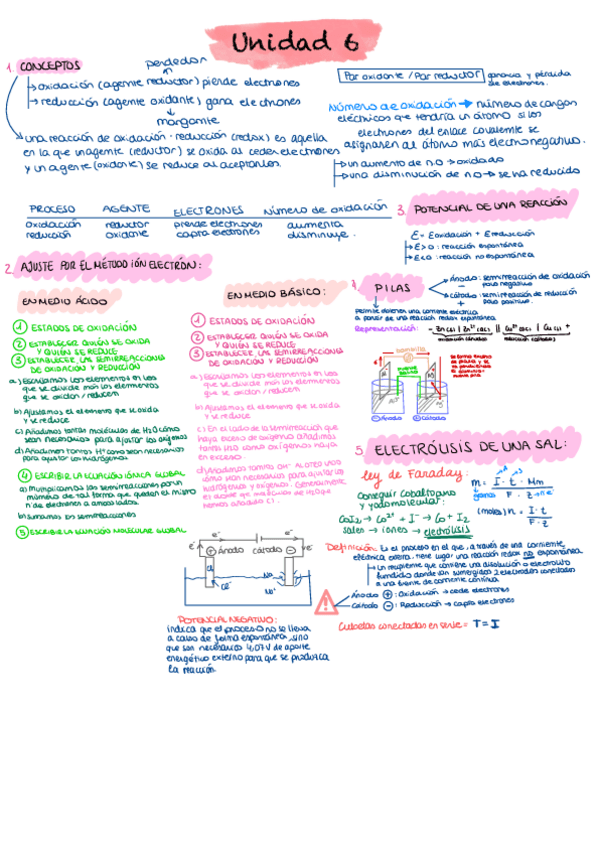 Unidad 6
1. CONCEPTOS
perdedor
oxidación (agente reductor) pierde electrones
reducción (agente oxidante) gana electrones
una reacción de oxidación - reducción (redox) es aquella
en la que un agente (reductor) se oxida al ceder electrones
y un agente (oxidante) se reduce al aceptarlos.
Par oxidante / Par reductor ganancia y pérdida
de electrones.
Número de oxidación número de cargas
eléctricas que tendría un átomo si los
electrones del enlace covalente se
asignasen al átomo más electronegativo.
un aumento de n.o → oxidado
una disminución de n.o → se ha reducido
PROCESO AGENTE ELECTRONES Número de oxidación
oxidación reductor pierde electrones aumenta
reducción oxidante capta electrones disminuye.
3. POTENCIAL DE UNA REACCIÓN
E = Eoxidación + Ereducción
E>0 : reacción espontánea
E<0 : reacción no espontánea
2. AJUSTE POR EL MÉTODO IÓN ELECTRÓN:
EN MEDIO ÁCIDO
1 ESTADOS DE OXIDACIÓN
2 ESTABLECER QUIÉN SE OXIDA
Y QUIÉN SE REDUCE
3 ESTABLECER LAS SEMIRREACCIONES
DE OXIDACIÓN Y REDUCCIÓN
a) Escribimos los elementos en los
que se divide más los elementos
que se oxidan / reducen
b) Ajustamos el elemento que se oxida
y se reduce
c) Añadimos tantas moléculas de H2O como
sean necesarias para ajustar los oxígenos
d) Añadimos tantos H+ como sean necesarios
para ajustar los hidrógenos
4 ESCRIBIR LA ECUACIÓN IÓNICA GLOBAL
a) Multiplicamos las semirreacciones por un
número de tal forma que queden el mismo
n de electrones a ambos lados.
b) Sumamos las semirreacciones
5 ESCRIBIR LA ECUACIÓN MOLECULAR GLOBAL
EN MEDIO BÁSICO:
1 ESTADOS DE OXIDACIÓN
2 ESTABLECER QUIÉN SE OXIDA
Y QUIÉN SE REDUCE
3 ESTABLECER LAS SEMIRREACCIONES
DE OXIDACIÓN Y REDUCCIÓN
a) Escribimos los elementos en los
que se divide más los elementos
que se oxidan / reducen
b) Ajustamos el elemento que se oxida
y se reduce
c) En el lado de la semirreacción que
haya exceso de oxígeno añadimos
tantas H2O como oxígenos haya
en exceso.
d) Añadimos tantos OH- AL OTRO LADO
como sean necesarios para ajustar los
hidrógenos y oxígenos. Generalmente
el doble que moléculas de H2O que
hemos añadido C).
4. PILAS
Ánodo: semirreacción de oxidación
polo negativo
Cátodo: semirreacción de reducción
polo positivo.
permite obtener una corriente eléctrica
a partir de una reacción redox espontánea
Representación: - Zn (s) | Zn2+ (ac) || Cu2+ (ac) | Cu (s) +
Ánodo Cátodo
5. ELECTRÓLISIS DE UNA SAL:
Ley de Faraday: m = I · t · Mm
gramos F · z
Conseguir cobalto puro
y yodo molecular: (moles) n = I · t
F · z
CoI2 → Co2+ + I- → Co + I2
sales → iones → electrólisis
Definición: Es el proceso en el que, a través de una corriente
eléctrica externa, tiene lugar una reacción redox no espontánea
Un recipiente que contiene una disolución o electrolito
fundido donde van sumergidos 2 electrodos conectados
a una fuente de corriente continua
Ánodo +: Oxidación → cede electrones
Cátodo -: Reducción → capta electrones
Cubetas conectadas en serie = I = I
e- Ánodo Cátodo e-
Cl- Na+
POTENCIAL NEGATIVO:
indica que el proceso no se lleva
a cabo de forma espontánea, sino
que son necesarios 4,07 V de aporte
energético externo para que se produzca
la reacción.